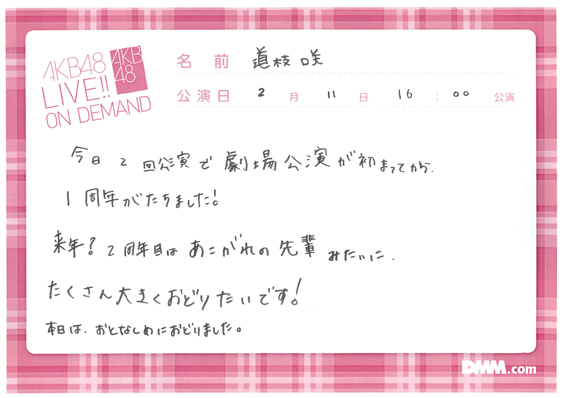 AKB48
LIVE!!
ON DEMAND
AKB
48
名 前 道枝咲
公演日 2 月 11 日 16 : 00 公演
今日 2 回公演で劇場公演が初まってから.
1周年がたちました!
来年? 2周年目は あこがれの 先輩 みたいに.
たくさん大きくおどりたいです!
本日は、おとなしめにおどりました。
DMM.com